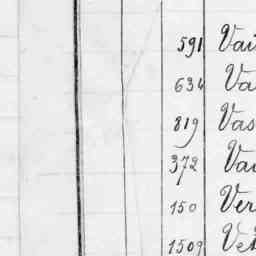 591 Vai
634 Va
819 Vas
372 Vai
150 Ver
1509 Vet